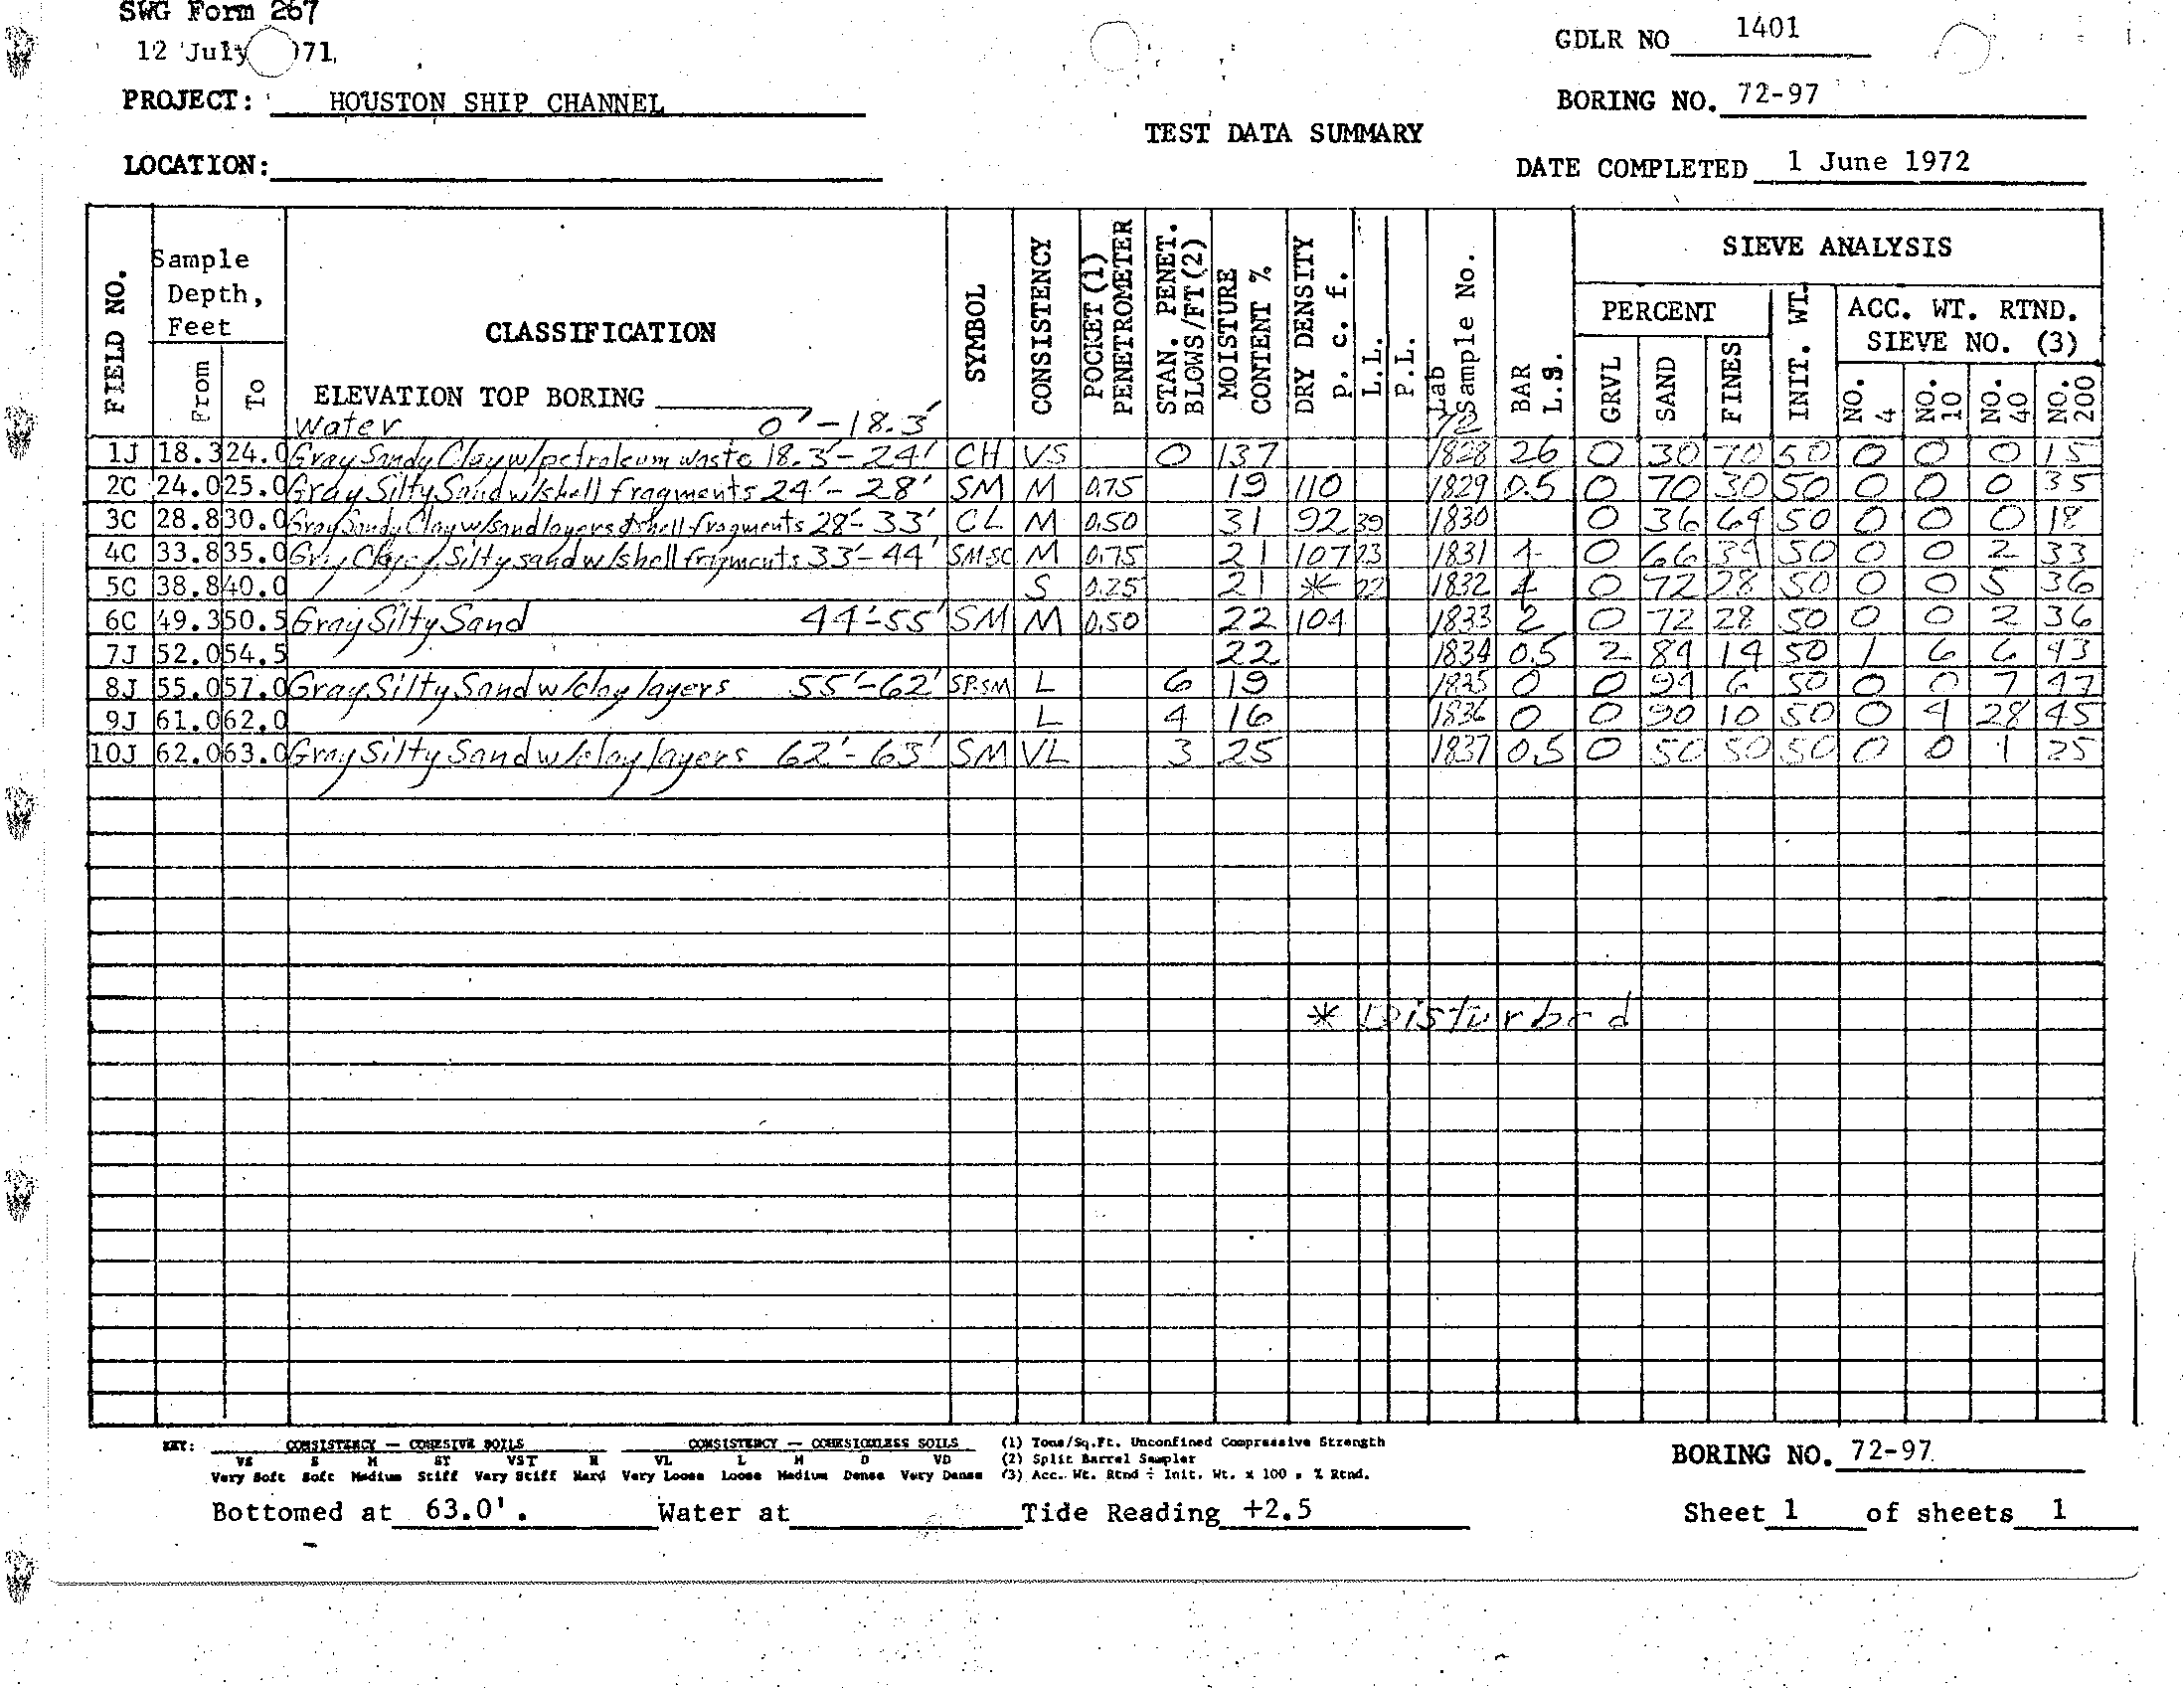 SWG Form 267
12 July 1971
GDLR NO 1401
PROJECT: HOUSTON SHIP CHANNEL
BORING NO. 72-97
TEST DATA SUMMARY
LOCATION:
DATE COMPLETED 1 June 1972
FIELD NO.
Sample Depth, Feet
From
To
CLASSIFICATION
ELEVATION TOP BORING
SYMBOL
CONSISTENCY
POCKET (1) PENETROMETER
STAN. PENET. BLOWS/FT (2)
MOISTURE CONTENT %
DRY DENSITY p. c. f.
L.L.
P.L.
Lab Sample No.
72
BAR L.S.
SIEVE ANALYSIS
PERCENT
GRVL
SAND
FINES
INIT. WT.
ACC. WT. RTND. SIEVE NO. (3)
NO. 4
NO. 10
NO. 40
NO. 200
Water 0'-18.3'
1J 18.3 24.0 Gray Sandy Clay w/petroleum waste 18.3'-24' CH VS 0 137 1828 26 0 30 70 50 0 0 0 15
2C 24.0 25.0 Gray Silty Sand w/shell fragments 24'-28' SM M 0.75 19 110 1829 0.5 0 70 30 50 0 0 0 35
3C 28.8 30.0 Gray Sandy Clay w/sand layers & shell fragments 28'-33' CL M 0.50 31 92 39 1830 0 36 64 50 0 0 0 18
4C 33.8 35.0 Gray Clayey Silty sand w/shell fragments 33'-44' SM-SC M 0.75 21 107 23 1831 1 0 66 34 50 0 0 2 33
5C 38.8 40.0 S 0.25 21 * 22 1832 0 72 28 50 0 0 5 36
6C 49.3 50.5 Gray Silty Sand 44'-55' SM M 0.50 22 104 1833 2 0 72 28 50 0 0 2 36
7J 52.0 54.5 22 1834 0.5 2 84 14 50 1 6 6 43
8J 55.0 57.0 Gray Silty Sand w/clay layers 55'-62' SP-SM L 6 19 1835 0 0 94 6 50 0 0 7 47
9J 61.0 62.0 L 4 16 1836 0 0 90 10 50 0 4 28 45
10J 62.0 63.0 Gray Silty Sand w/clay layers 62'-63' SM VL 3 25 1837 0.5 0 50 50 50 0 0 1 25
* Disturbed
KEY: CONSISTENCY — COHESIVE SOILS CONSISTENCY — COHESIONLESS SOILS (1) Tons/Sq.Ft. Unconfined Compressive Strength
VS S M ST VST H VL L M D VD (2) Split Barrel Sampler
Very Soft Soft Medium Stiff Very Stiff Hard Very Loose Loose Medium Dense Very Dense (3) Acc. Wt. Rtnd ÷ Init. Wt. x 100 = % Rtnd.
BORING NO. 72-97
Bottomed at 63.0'. Water at Tide Reading +2.5 Sheet 1 of sheets 1